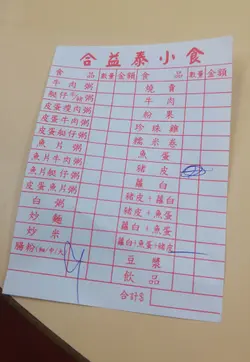 合益泰小食
食 品 數量 金額 食 品 數量 金額
牛肉粥 燒賣
艇仔粥 牛肉
皮蛋瘦肉粥 粉果
皮蛋牛肉粥 珍珠雞
皮蛋艇仔粥 糯米卷
魚片粥 魚蛋
魚片牛肉粥 豬皮
魚片艇仔粥 蘿白
皮蛋魚片粥 豬皮+蘿白
白粥 豬皮+魚蛋
炒麵 蘿白+魚蛋
炒米 蘿白+魚蛋+豬皮
腸粉 豆漿
飲品
合計$